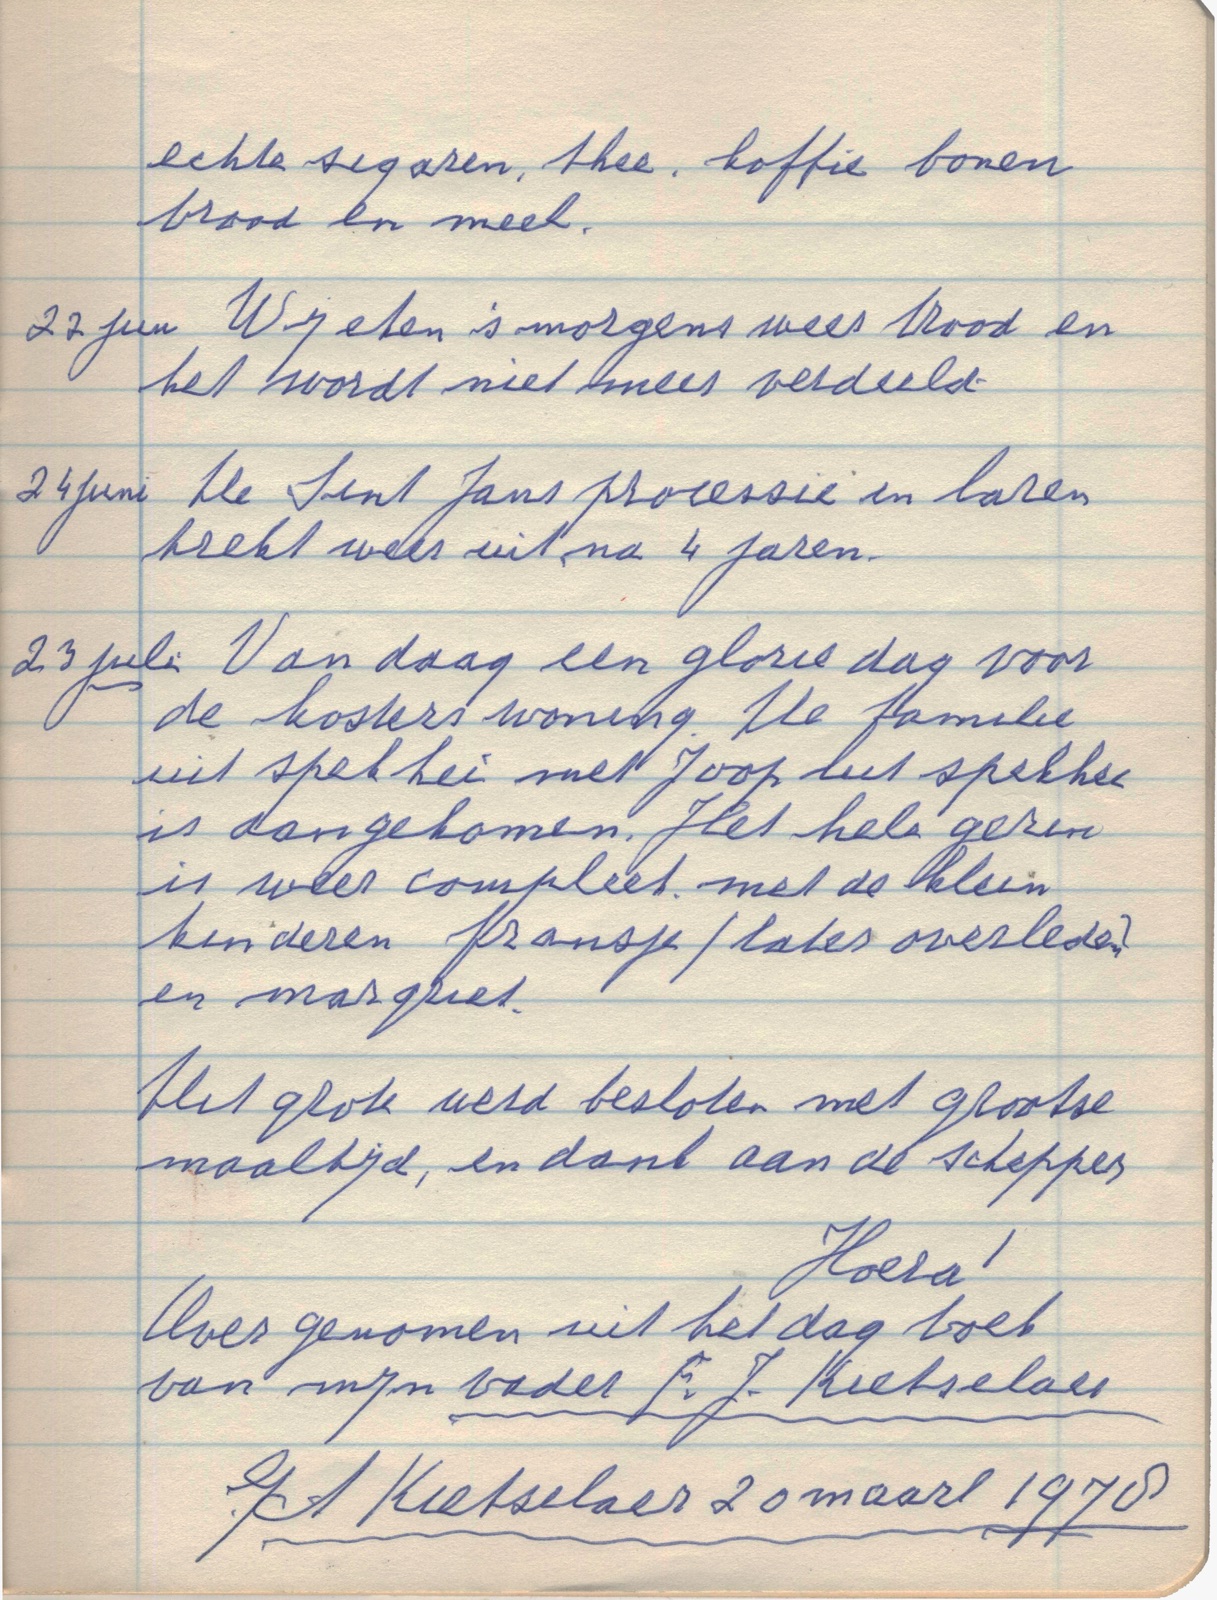 echte segaren, thee, koffie bonen
brood en meel.
22 jun Wij eten 's morgens weer brood en
het wordt niet meer verdeeld
24 juni De Sint Jans processie in laren
trekt weer uit, na 4 jaren.
23 juli Van daag een glorie dag voor
de kosters woning. De familie
uit spekhei met Joop uit spekhei
is aangekomen. Het hele gezin
is weer compleet. met de klein
kinderen fransje (later overleden)
en margriet.
Het grote werd besloten met grootse
maaltijd, en dank aan de schepper
Hoera!
Over genomen uit het dag boek
van mijn vader F. J. Kietselaer
A Kietselaer 20 maart 1978